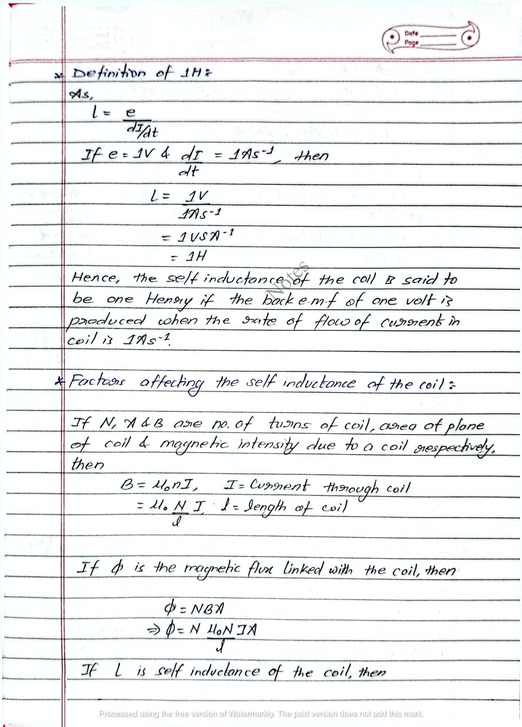 Date
Page
* Definition of 1H:
As,
L = e
dI/dt
If e = 1V & dI/dt = 1As⁻¹, then
L = 1V
1As⁻¹
= 1VSA⁻¹
= 1H
Hence, the self inductance of the coil is said to
be one Henry if the back e.m.f of one volt is
produced when the rate of flow of current in
coil is 1As⁻¹.
Notes
* Factors affecting the self inductance of the coil:
If N, A & B are no. of turns of coil, area of plane
of coil & magnetic intensity due to a coil respectively,
then
B = μ₀nI, I = Current through coil
= μ₀ N/l I, l = length of coil
If φ is the magnetic flux linked with the coil, then
φ = NBA
⇒ φ = N μ₀NIA/l
If L is self inductance of the coil, then
Processed using the free version of Watermarkly. The paid version does not add this mark.